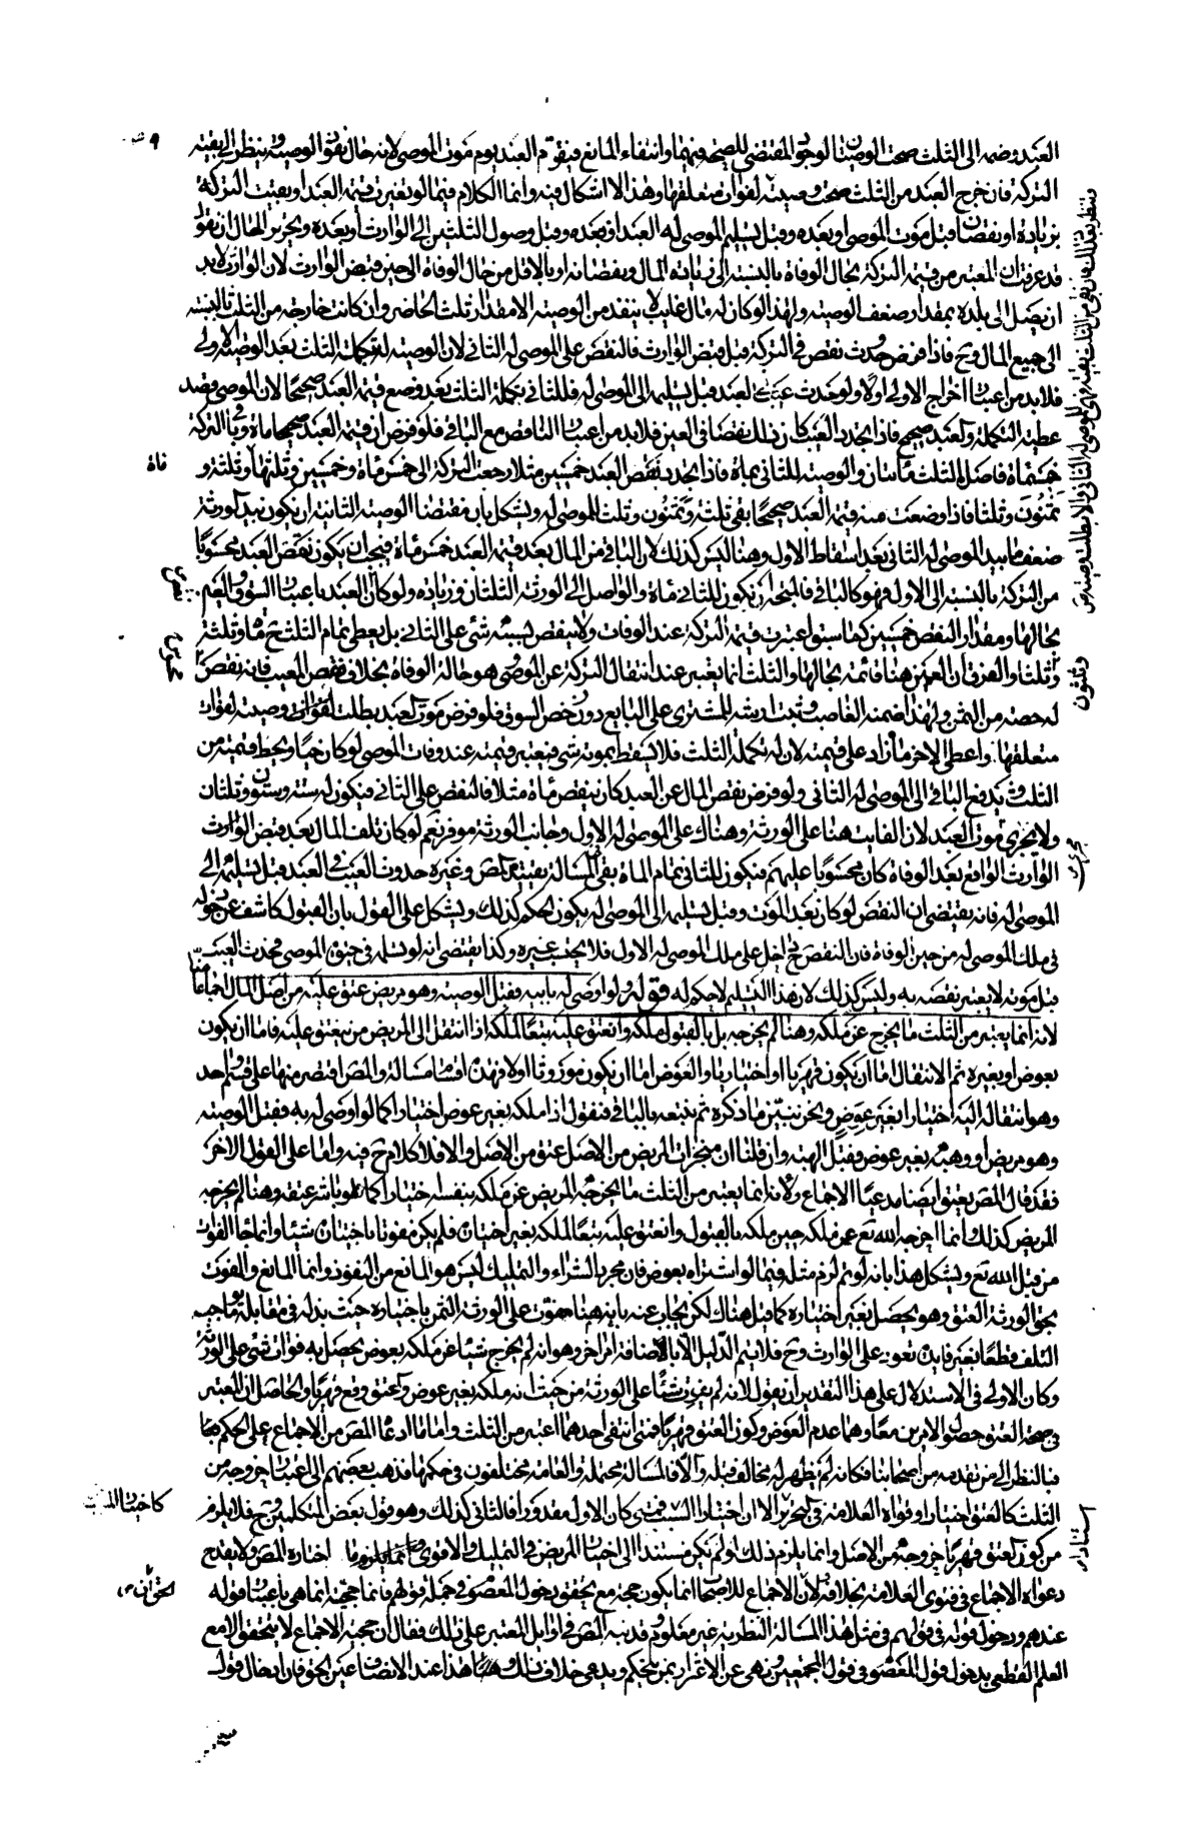 العبد وضمه الى الثلث صحت الوصيتان لوجود المقتضي للصحة فيهما وانتفاء المانع فيقوم العبد يوم موت الموصي لانه حال نفوذ الوصية وينظر الى بقية
التركة فان خرج العبد من الثلث صحت وصيته لفوات متعلقها وهذا لا اشكال فيه وانما الكلام فيما لو تغيرت قيمة العبد او بقيت التركة
بزيادة او نقصان قبل موت الموصي او بعده وقبل تسليم الموصى له العبد او بعده وقبل وصول الثلثين الى الوارث او بعده وتحرير الحال ان نقول
قد عرفت ان المعتبر من قيمة التركة بحال الوفاة بالنسبة الى زيادة المال ونقصانه او بالاقل من حال الوفاة الى حين قبض الوارث لان الوارث لا بد
ان يصل الى يده بمقدار ضعف الوصية ولهذا لو كان له مال غايب لا ينفذ من الوصية الا مقدار ثلث الحاضر وان كانت خارجة من الثلث بالنسبة
الى جميع المال وح فاذا فرض حدوث نقص في التركة قبل قبض الوارث فالنقص على الموصى له الثاني لان الوصية له بتكملة الثلث بعد الوصية الاولى
فلا بد من اعتبار اخراج الاولى اولا ولو حدث عيب في العبد قبل تسليمه الى الموصى له فللثاني تكملة الثلث بعد وضع قيمة العبد صحيحا لان الموصي قصد
عطية التكملة والعبد صحيح فاذا تجدد العيب كان ذلك نقصا في العين فلا بد من اعتبار الناقص مع الباقي فلو فرض ان قيمة العبد صحيحا ماة وباقي التركة
خمسماة فاصل الثلث مأتان والوصية للثاني بماة فاذا تجدد نقص العبد خمسين مثلا رجعت التركة الى خمسماة وخمسين وثلثها ماة وثلثة و
ثمانون وثلث فاذا وضعت منه قيمة العبد صحيحا بقي ثلثة وثمنون وثلث للموصى له ويشكل بان مقتضى الوصية الثانية ان يكون بيد الورثة
ضعف ما بيد الموصى له الثاني بعد اسقاط الاول وهنا ليس كذلك لان الباقي من المال بعد قيمة العبد خمسماة فيجب ان يكون نقص العبد محسوبا
من التركة بالنسبة الى الاول فهو كالباقي فالمتجه ان يكون للثاني ماة والواصل الى الورثة الثلثان وزيادة ولو كان العبد باعتبار السوق والقيم
بحالها ومقدار النقص خمسين كما سبق اعتبرت قيمة التركة عند الوفات ولا ينقص بسببه شئ على الثاني بل يعطى تمام الثلث ح ماة وثلثة
وثلثا والفرق ان العين هنا قائمة بحالها والثلث انما يعتبر عند انتقال التركة عن الموصي وهو حالة الوفاة بخلاف نقص العيب فانه نقص
له حصة من الثمن ولهذا ضمنه الغاصب وثبت ارشه للمشتري على البايع دون رخص السوق فلو فرض موت العبد بطلت وصيته لفوات
متعلقها واعطى الاخر ما زاد على قيمته لان له تكملة الثلث فلا يسقط بموته شئ فيعتبر قيمته عند وفات الموصي لو كان حيا ويحط قيمته من
الثلث ويدفع الباقي الى الموصى له الثاني ولو فرض نقص المال عن العبد كان نقص ماة مثلا فالنقص على الثاني فيكون له ستة وستون وثلثان
ولا يجري موت العبد لان الفايت هنا على الورثة وهناك على الموصى له الاول وجانب الورثة موفر نعم لو كان تلف المال بعد قبض الوارث
الوارث الواقع بعد الوفاة كان محسوبا عليهم فيكون للثاني تمام الماة بقي في المسالة بقية وغيره حدوث العيب في العبد قبل تسليمه الى
الموصى له فانه يقتضي ان النقص لو كان بعد الموت وقبل تسليمه الى الموصى له يكون الحكم كذلك ويشكل على القول بان القبول كاشف عن دخوله
في ملك الموصى له من حين الوفاة فان النقص ح داخل على ملك الموصى له الاول فلا يجب جبره وكذا يقتضي انه لو تسلمه في حيوة الموصي فحدث العيب
قبل موته لا يعتبر نقصه به وليس كذلك لان هذا التسليم لا حكم له قوله ولو اوصى له بابيه فقبل الوصية وهو مريض عتق عليه من اصل المال اجماعا منا
لانه انما يعتبر من الثلث ما يخرج عن ملكه وهنا لم يخرجه بل بالقبول ملكه وانعتق عليه تبعا لملكه اذا انتقل الى المريض من ينعتق عليه فاما ان يكون
بعوض او بغيره ثم الانتقال اما ان يكون قهريا او اختياريا والعوض اما ان يكون موروثا او لا فهذه اقسام المسالة والمص اقتصر منها على قسم واحد
وهو انتقاله اليه اختيارا بغير عوض ونحن نبين ما ذكره ثم نتبعه بالباقي فنقول اذا ملكه بغير عوض اختيارا كما لو اوصى له به فقبل الوصية
وهو مريض او وهبه بغير عوض فقبل الهبة وان قلنا ان منجزات المريض من الاصل عتق من الاصل والا فلا كلام ح فيه واما على القول الاخر
فقد قال المص يعتق ايضا مدعيا الاجماع ولانه انما يعتبر من الثلث ما يخرجه المريض عن ملكه بنفسه اختيارا كما لو باشر عتقه وهنا لم يخرجه
المريض كذلك وانما اخرجه الله تع عن ملكه حين ملكه بالقبول وانعتق عليه تبعا لملكه بغير اختياره فلم يكن مفوتا باختياره شيئا وانما جاء الفوات
من قبل الله تع ويشكل هذا بانه لو تم لزم مثله فيما لو اشتراه بعوض فان مجرد الشراء والتمليك ليس هو المانع من النفوذ وانما المانع والمفوت
بحق الورثة العتق وهو يحصل بغير اختياره كما قبل هناك لكن يجاب عنه بانه هنا مفوت على الورثة الثمن باختياره حيث بذله في مقابلة ما يوجب
التلف قطعا بغير فايدة تعود على الوارث وح فلا يتم الدليل الا بالاضافة امر اخر وهو انه لم يخرج شيئا عن ملكه بعوض يحصل به فوات شئ على الورثة
وكان الاولى في الاستدلال على هذا التقدير ان يقول لانه لم يفوت شيئا على الورثة من حيث انه ملكه بغير عوض والعتق وقع قهريا والحاصل ان المعتبر
في صحة العتق حصول الامرين معا وهما عدم العوض وكون العتق قهريا فمتى انتفى احدهما اعتبر من الثلث واما ما ادعاه المص من الاجماع على الحكم هنا
فبالنظر الى من تقدمه من اصحابنا فكانه لم يظهر له مخالف قبله والا فالمسالة محتملة والعامة مختلفون في حكمها فذهب بعضهم الى اعتبار خروجه من
الثلث كالعتق اختيارا وقواه العلامة في التحرير الا ان اختيار السبب فمتى كان الاول مقدورا فالثاني كذلك وهو قول بعض المتكلمين وح فلا يلزم
من كون العتق قهريا خروجه من الاصل وانما يلزم ذلك لو لم يكن مستندا الى اختيار المريض في التمليك والاقوى اختاره المص ولا يقدح
دعواه الاجماع في فتوى العلامة بخلافه لان الاجماع للاصحاب انما يكون حجة مع تحقق دخول المعصوم في جملة قولهم فانما حجيته انما هي باعتبار قوله
عندهم ودخول قوله في قولهم في مثل هذه المسالة النظرية غير معلوم وقد نبه المص في اوايل المعتبر على ذلك فقال ان حجية الاجماع لا يتحقق الا مع
العلم القطعي بدخول قول المعصوم في قول المجمعين ونهى عن الاغترار بمن يتحكم ويدعي خلاف ذلك وهذا عند الانصاف عين الحق فان ادخال قول